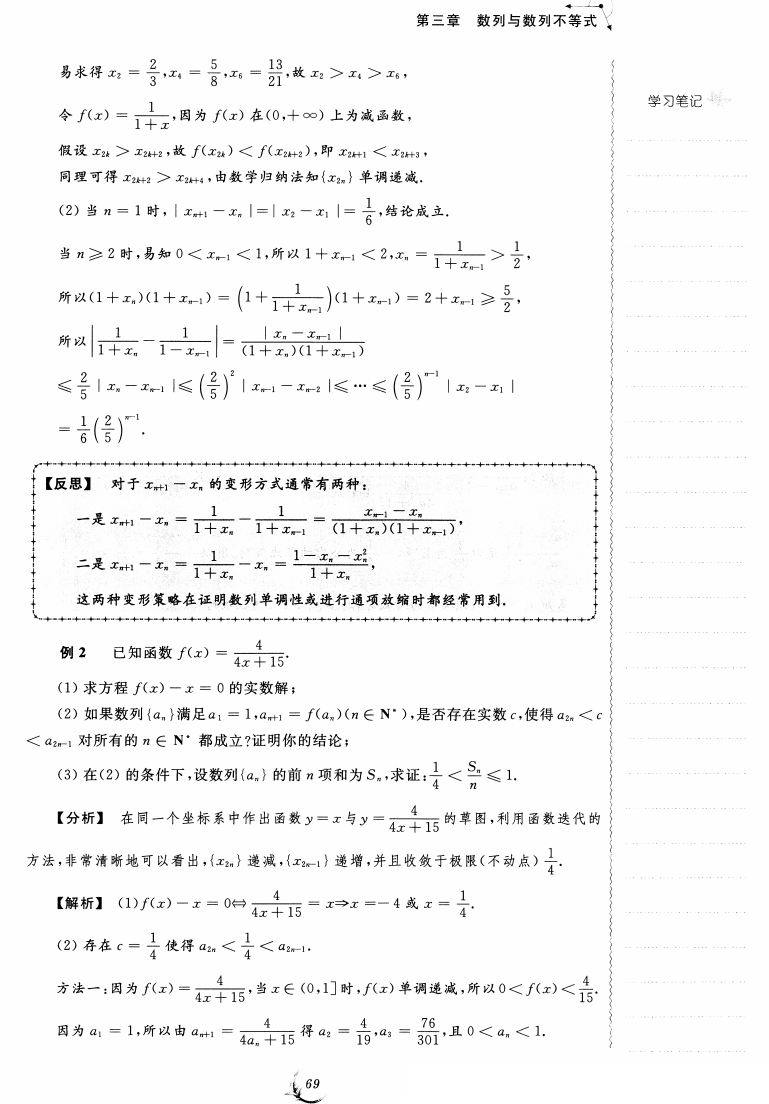 第三章 数列与数列不等式
学习笔记
易求得 x₂ = 2/3, x₄ = 5/8, x₆ = 13/21, 故 x₂ > x₄ > x₆,
令 f(x) = 1/(1+x), 因为 f(x) 在(0,+∞) 上为减函数,
假设 x₂ₖ > x₂ₖ₊₂, 故 f(x₂ₖ) < f(x₂ₖ₊₂), 即 x₂ₖ₊₁ < x₂ₖ₊₃,
同理可得 x₂ₖ₊₂ > x₂ₖ₊₄, 由数学归纳法知{x₂ₙ} 单调递减.
(2) 当 n = 1 时, |xₙ₊₁ − xₙ| = |x₂ − x₁| = 1/6, 结论成立.
当 n ⩾ 2 时, 易知 0 < xₙ₋₁ < 1, 所以 1 + xₙ₋₁ < 2, xₙ = 1/(1+xₙ₋₁) > 1/2,
所以(1+xₙ)(1+xₙ₋₁) = (1 + 1/(1+xₙ₋₁))(1+xₙ₋₁) = 2 + xₙ₋₁ ⩾ 5/2,
所以 |1/(1+xₙ) − 1/(1−xₙ₋₁)| = |xₙ − xₙ₋₁|/((1+xₙ)(1+xₙ₋₁))
⩽ 2/5 |xₙ − xₙ₋₁| ⩽ (2/5)² |xₙ₋₁ − xₙ₋₂| ⩽ … ⩽ (2/5)ⁿ⁻¹ |x₂ − x₁|
= 1/6 (2/5)ⁿ⁻¹.
【反思】 对于 xₙ₊₁ − xₙ 的变形方式通常有两种:
一是 xₙ₊₁ − xₙ = 1/(1+xₙ) − 1/(1+xₙ₋₁) = (xₙ₋₁ − xₙ)/((1+xₙ)(1+xₙ₋₁)),
二是 xₙ₊₁ − xₙ = 1/(1+xₙ) − xₙ = (1−xₙ−xₙ²)/(1+xₙ),
这两种变形策略在证明数列单调性或进行通项放缩时都经常用到.
例 2 已知函数 f(x) = 4/(4x+15).
(1) 求方程 f(x) − x = 0 的实数解;
(2) 如果数列{aₙ}满足 a₁ = 1, aₙ₊₁ = f(aₙ)(n ∈ N*), 是否存在实数 c, 使得 a₂ₙ < c
< a₂ₙ₋₁ 对所有的 n ∈ N* 都成立?证明你的结论;
(3) 在(2) 的条件下, 设数列{aₙ} 的前 n 项和为 Sₙ, 求证: 1/4 < Sₙ/n ⩽ 1.
【分析】 在同一个坐标系中作出函数 y = x 与 y = 4/(4x+15) 的草图, 利用函数迭代的
方法, 非常清晰地可以看出, {x₂ₙ} 递减, {x₂ₙ₋₁} 递增, 并且收敛于极限(不动点) 1/4.
【解析】 (1) f(x) − x = 0⇔ 4/(4x+15) = x⇒x = −4 或 x = 1/4.
(2) 存在 c = 1/4 使得 a₂ₙ < 1/4 < a₂ₙ₋₁.
方法一: 因为 f(x) = 4/(4x+15), 当 x ∈ (0,1] 时, f(x) 单调递减, 所以 0 < f(x) < 4/15.
因为 a₁ = 1, 所以由 aₙ₊₁ = 4/(4aₙ+15) 得 a₂ = 4/19, a₃ = 76/301, 且 0 < aₙ < 1.
69